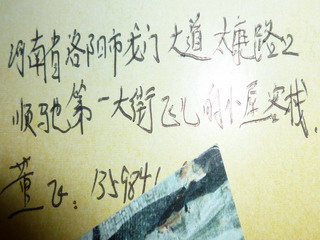 河南省洛阳市龙门大道太康路口
顺驰第一大街飞儿的小屋客栈.
董飞: 1359841